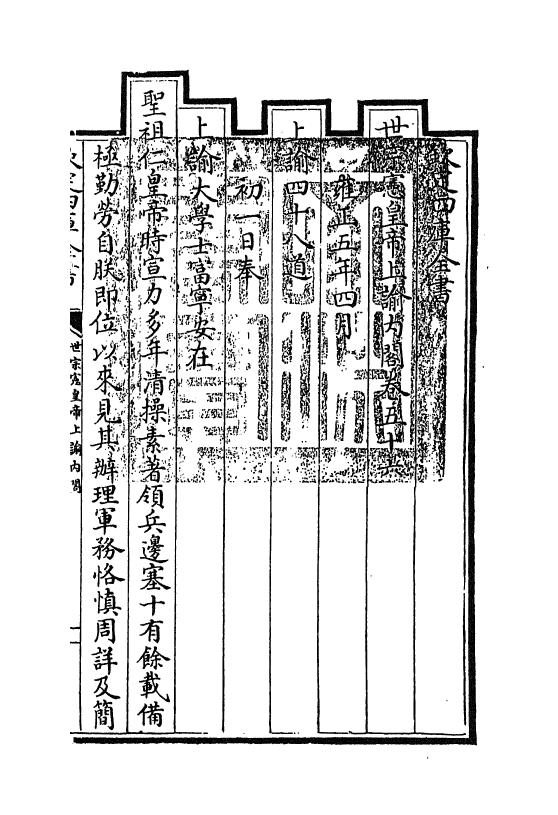 欽定四庫全書
世宗憲皇帝上諭内閣卷五十六
雍正五年四月
上諭四十八道
初一日奉
上諭大學士富寧安在
聖祖仁皇帝時宣力多年清操素著領兵邊塞十有餘載備
極勤勞自朕即位以來見其辦理軍務恪慎周詳及簡
欽定四庫全書
世宗憲皇帝上諭内閣
一